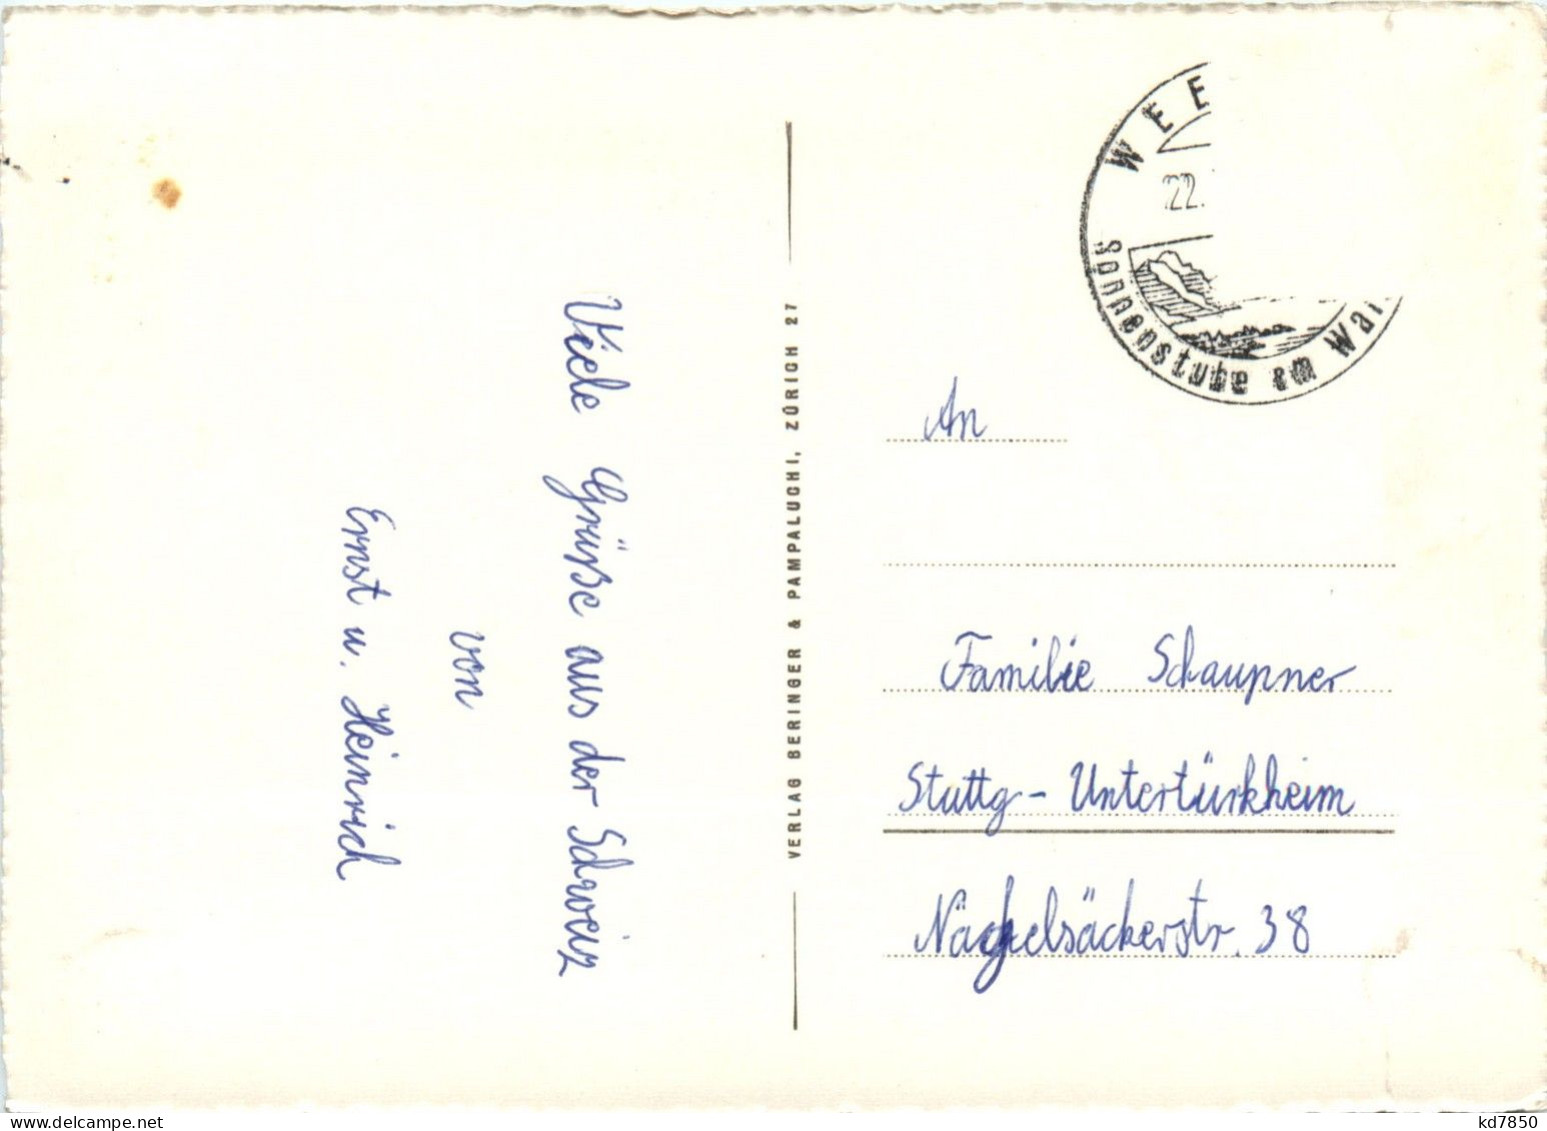 Viele Grüße aus der Schweiz
von
Ernst u. Heinrich
VERLAG BERINGER & PAMPALUCHI, ZÜRICH 27
WEE
22.
Sonnenstube am Wal
An
Familie Schaupner
Stuttg-Untertürkheim
Nägelsäckerstr. 38
kd7850